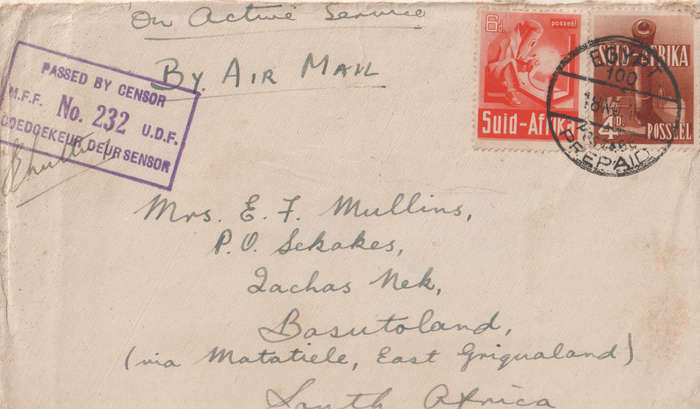 On Active Service
By Air Mail
PASSED BY CENSOR
M.F.F. No. 232 U.D.F.
GOEDGEKEUR DEUR SENSOR
6d posseël
Suid-Afrika
SUID-AFRIKA
4D. POSSEEL
EGYPT
100
18
PREPAID
Mrs. E. F. Mullins,
P.O. Sekakes,
Qachas Nek,
Basutoland,
(via Matatiele, East Griqualand)
South Africa